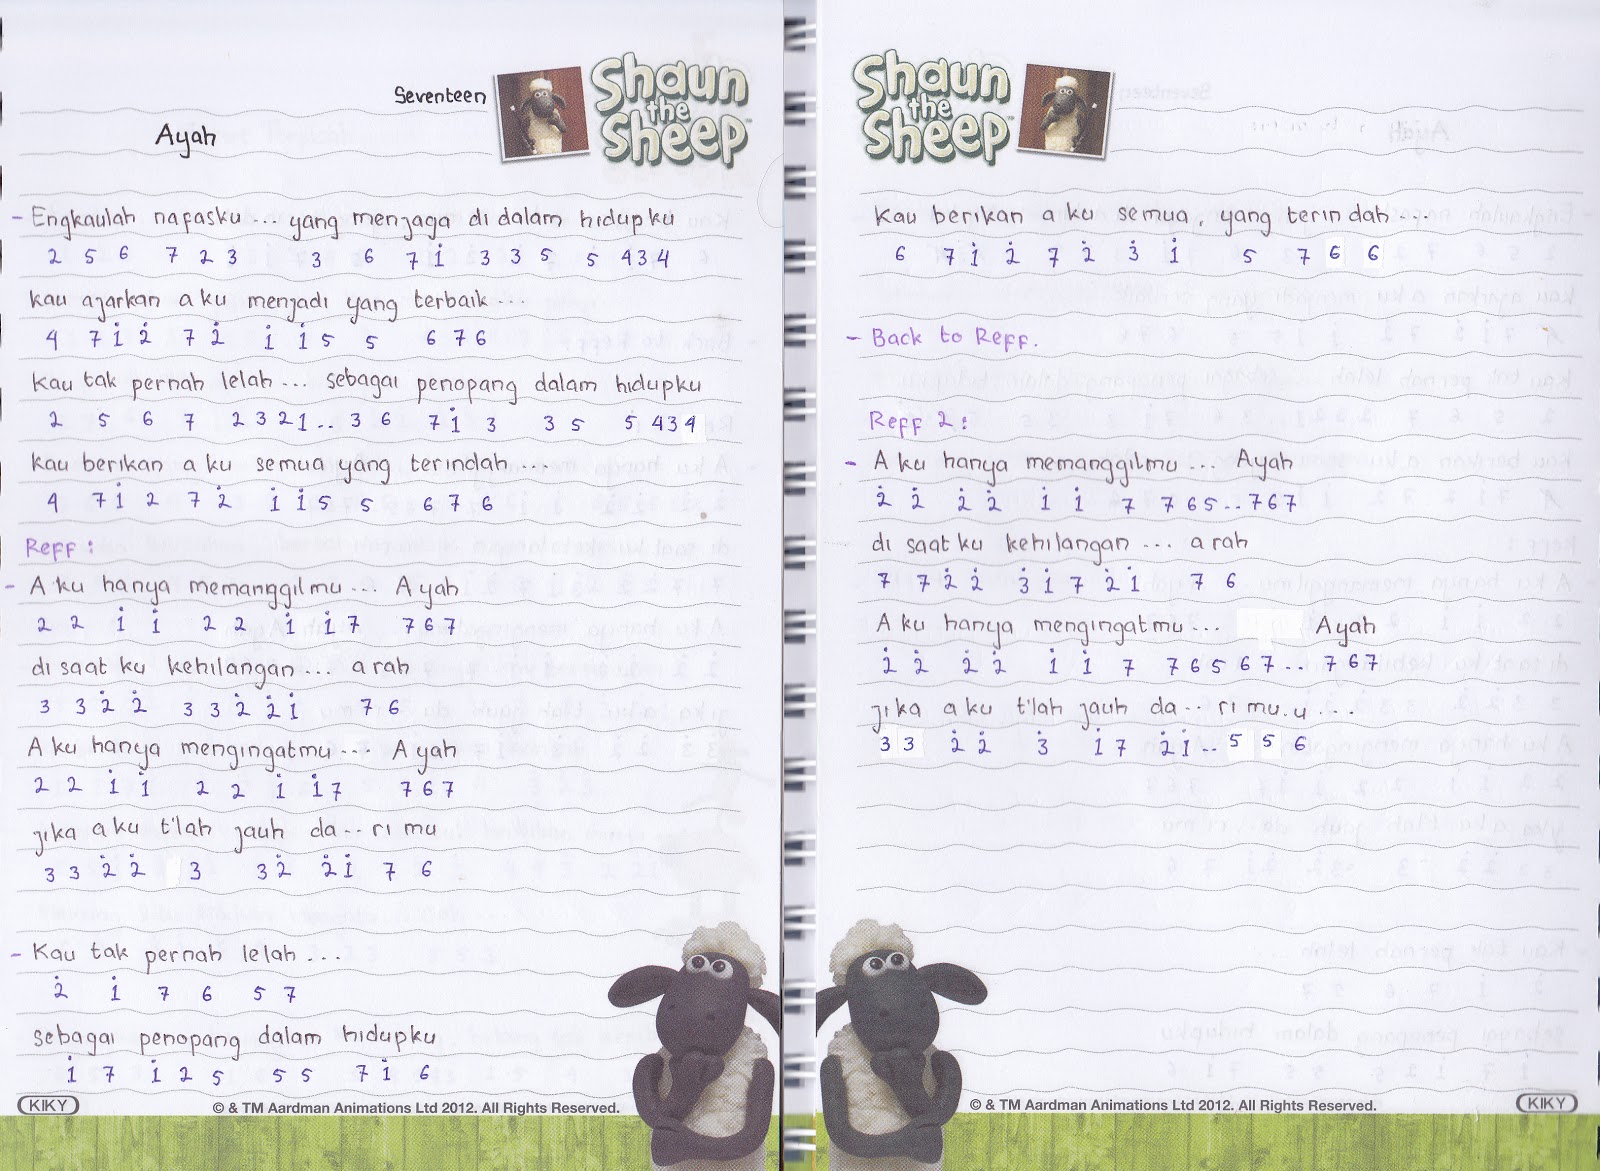 Seveenteen
Shaun the Sheep™
Ayah
- Engkaulah nafasku... yang menjaga di dalam hidupku
2 5 6 7 2 3 3 6 7 i̇ 3 3 5 5 4 3 4
kau ajarkan aku menjadi yang terbaik...
4 7 1̇ 2̇ 7 2̇ 1̇ 1̇ 5 5 6 7 6
kau tak pernah lelah... sebagai penopang dalam hidupku
2 5 6 7 2 3 2 1.. 3 6 7 1̇ 3 3 5 5 4 3 4
kau berikan aku semua yang terindah...
4 7 1̇ 2 7 2̇ 1̇ 1̇ 5 5 6 7 6
Reff :
- Aku hanya memanggilmu... Ayah
2 2 1̇ 1̇ 2 2 1̇ 1̇ 7 7 6 7
di saat ku kehilangan... arah
3 3 2̇ 2̇ 3 3 2̇ 2̇ 1̇ 7 6
Aku hanya mengingatmu... Ayah
2 2 1̇ 1̇ 2 2 1̇ 1̇ 7 7 6 7
jika aku t'lah jauh da.. ri mu
3 3 2̇ 2̇ 3 3 2̇ 2̇ 1̇ 7 6
- Kau tak pernah lelah...
2̇ 1̇ 7 6 5 7
sebagai penopang dalam hidupku
1̇ 7 1̇ 2 5 5 5 7 1̇ 6
KIKY
© & TM Aardman Animations Ltd 2012. All Rights Reserved.
Shaun the Sheep™
kau berikan aku semua, yang terindah...
6 7 1̇ 2̇ 7 2̇ 3̇ 1̇ 5 7 6 6
- Back to Reff.
Reff 2 :
- Aku hanya memanggilmu... Ayah
2̇ 2̇ 2̇ 2̇ 1̇ 1̇ 7 7 6 5.. 7 6 7
di saat ku kehilangan... arah
7 7 2̇ 2̇ 3̇ 1̇ 7 2̇ 1̇ 7 6
Aku hanya mengingatmu... Ayah
2̇ 2̇ 2̇ 2̇ 1̇ 1̇ 7 7 6 5 6 7.. 7 6 7
jika aku t'lah jauh da.. ri mu.u...
3 3 2̇ 2̇ 3̇ 1̇ 7 2̇ 1̇.. 5 5 6
© & TM Aardman Animations Ltd 2012. All Rights Reserved.
KIKY